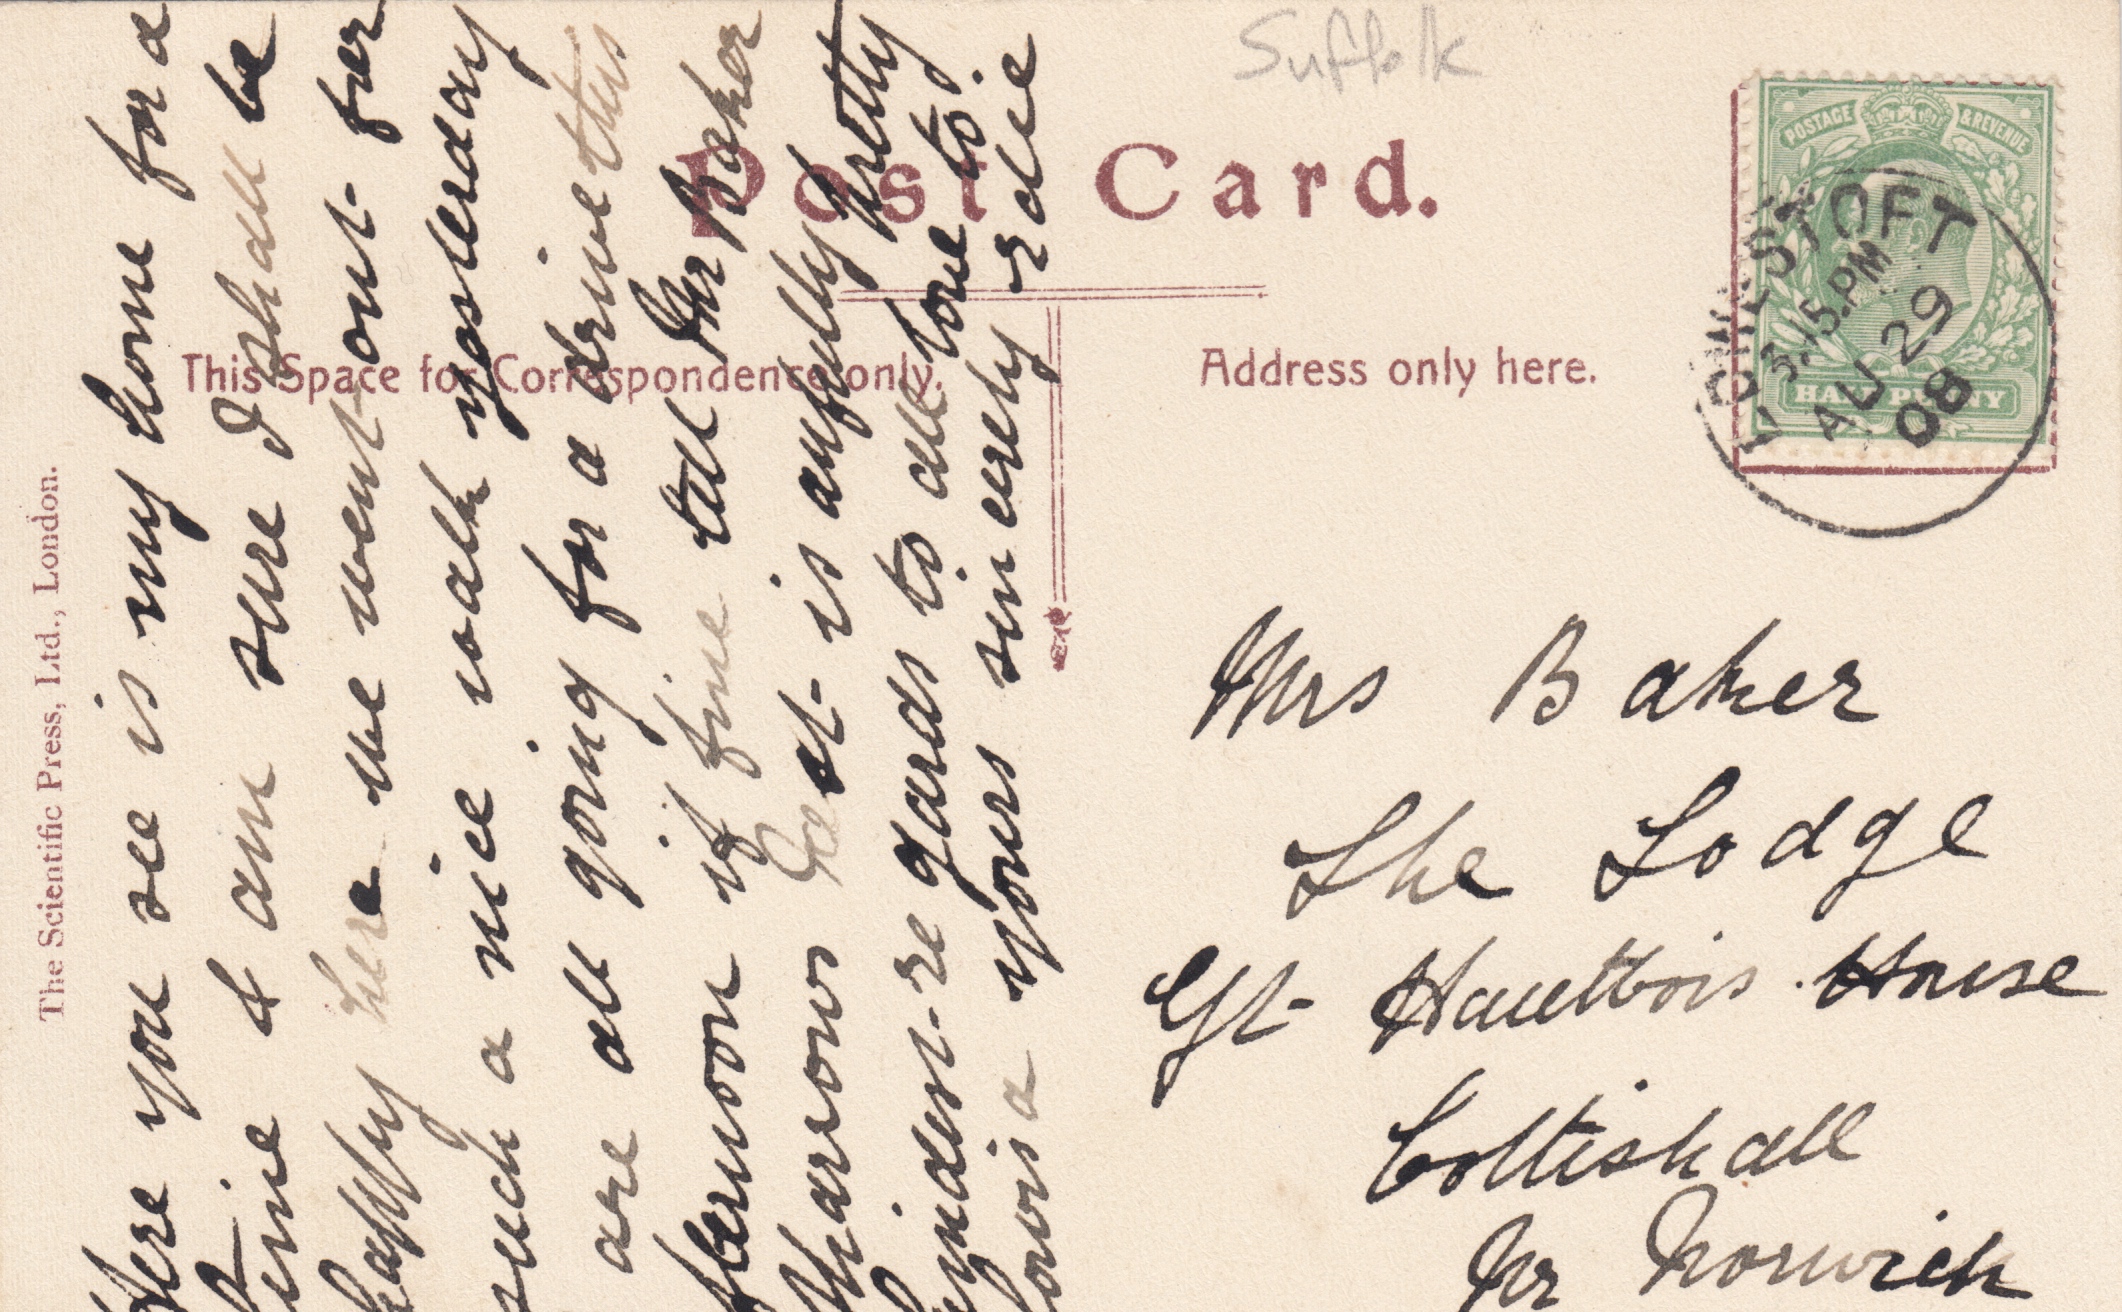 Suffolk
Post Card.
POSTAGE & REVENUE
HALF PENNY
LOWESTOFT
3.15.PM
AU 29
08
This Space for Correspondence only.
Address only here.
The Scientific Press, Ltd., London.
Here you see is my home for a
time & am sure I shall be
happy here we went out for
such a nice walk yesterday
are all going for a drive this
afternoon if fine tell Mr Baker
is awfully pretty
kindest regards to all love to.
yours sincerely
Mrs Baker
The Lodge
Gt Hautbois House
Coltishall
Nr Norwich